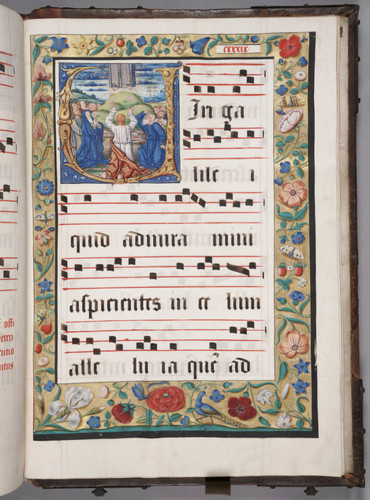 cxxxix
Viri ga
lile i
quid admira mini
aspicientes in ce lum
alle lu ia que ad